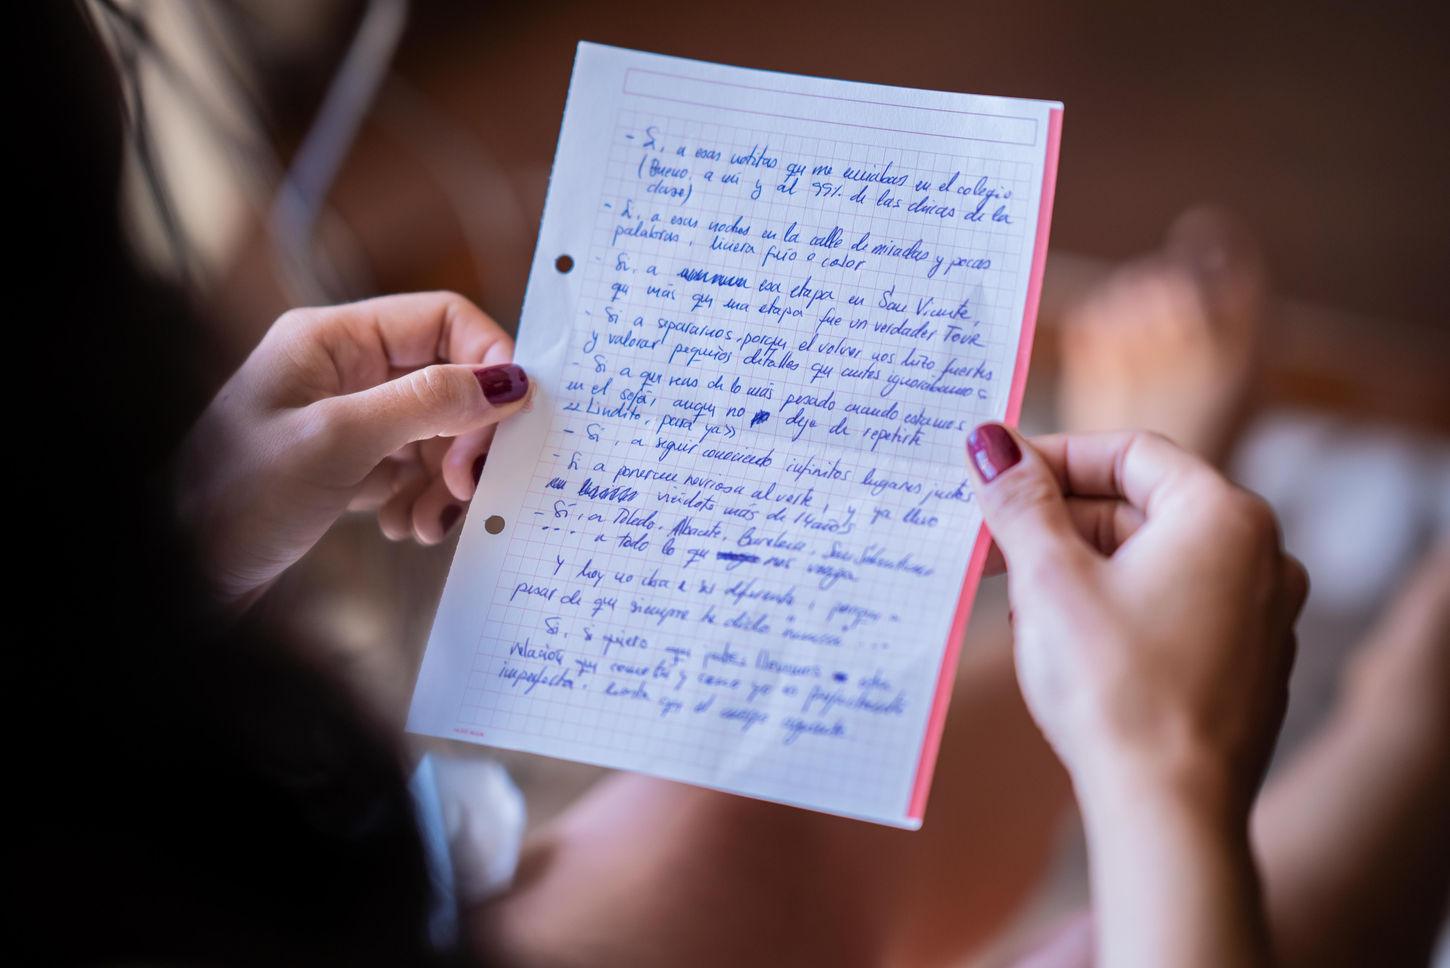 - Sí, a esas notitas que me enviabas en el colegio
(Bueno, a mí y al 99% de las chicas de la
clase)
- Sí, a esas noches en la calle de miradas y pocas
palabras, hiciera frío o calor
- Sí, a esa etapa en San Vicente,
que más que una etapa fue un verdader Tour
- Sí a separarnos, porque el volver nos hizo fuertes
y valorar pequeños detalles que antes ignorábamos
- Sí a que seas de lo más pesado cuando estamos
en el sofá, aunque no deje de repetirte
<<Lindito, para ya>>
- Sí, a seguir conociendo infinitos lugares juntos
- Sí a ponerme nerviosa al verte, y ya llevo
viéndote más de 14 años
- Sí, a Toledo, Albacete, Barcelona, San Sebastián
... a todo lo que nos venga
Y hoy no iba a ser diferente, porque a
pesar de que siempre he dicho nunca ...
Sí, si quiero que
relación que como tú y como yo es perfectamente
imperfecta.